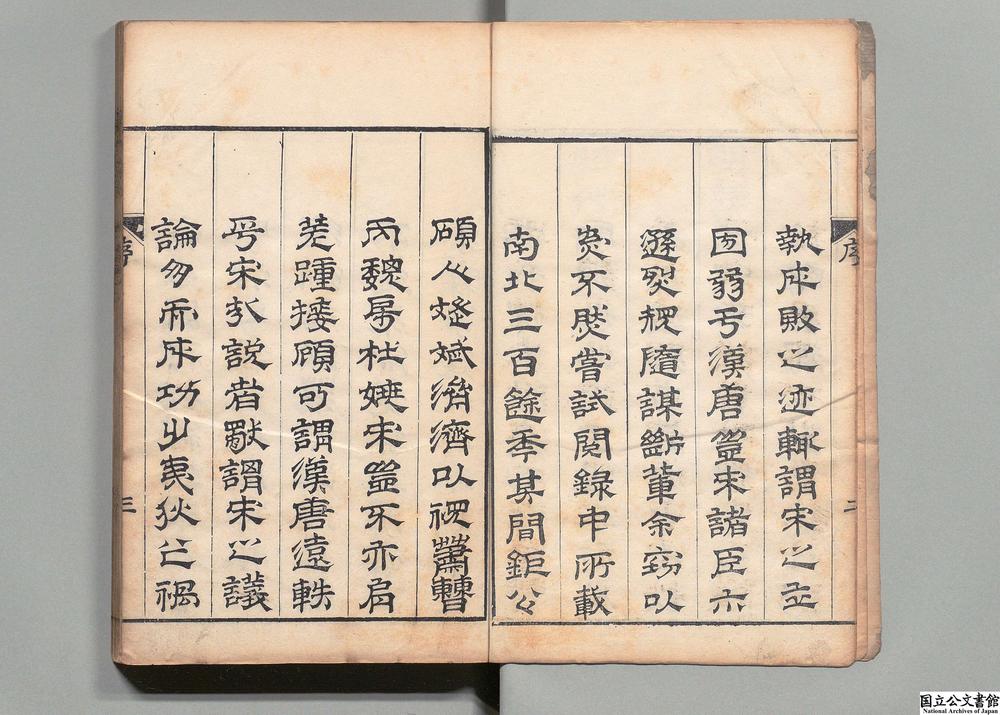 序
二
執成敗之迹輒謂宋之立
國弱于漢唐豈宋諸臣亦
遜烈規隨謀斷輩余竊以
為不然嘗試閱錄中所載
南北三百餘年其間鉅公
碩人斌濟濟以視蕭曹
丙魏房杜姚宋豈不亦肩
差踵接顧可謂漢唐遠軼
乎宋哉說者猷謂宋之議
論多而成功少夷狄之禍
序
三
国立公文書館
National Archives of Japan